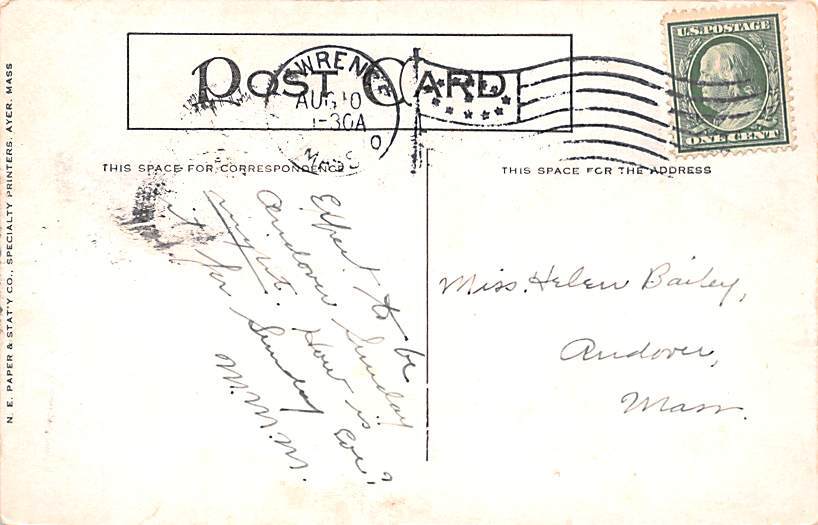 POST CARD
LAWRENCE
AUG 10
-30A
MASS
U.S. POSTAGE
ONE CENT
THIS SPACE FOR CORRESPONDENCE
THIS SPACE FOR THE ADDRESS
Expect to be
Andover Sunday
night. How is
it for Sunday eve?
M.M.M.
Miss. Helen Bailey,
Andover,
Mass.
N. E. PAPER & STAT'Y CO., SPECIALTY PRINTERS, AYER, MASS